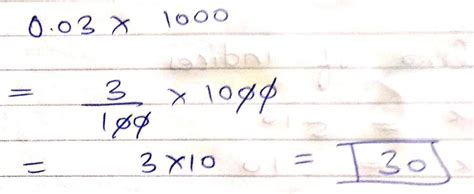 0.03 × 1000
= 3/100 × 1000
= 3×10 = 30